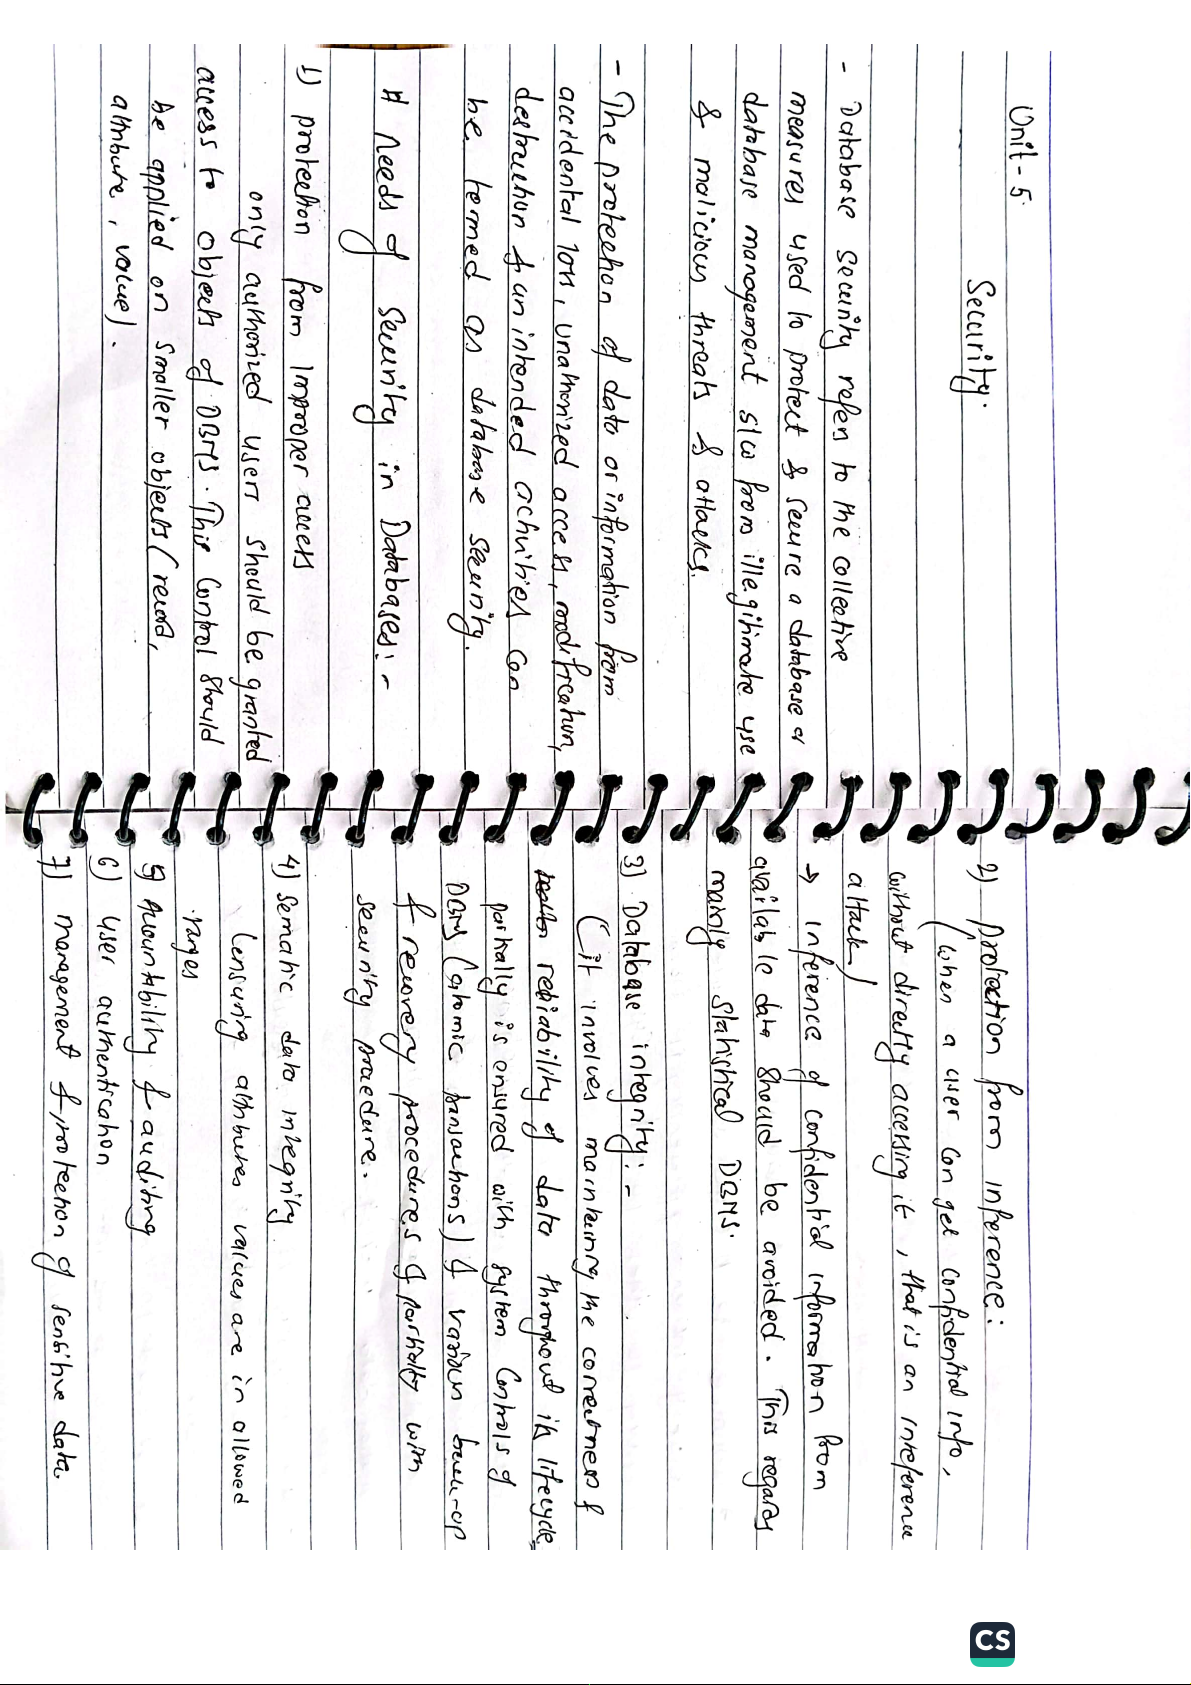 Unit-5.
Security.
- Database Security refers to the collective
measures used to protect & secure a database or
database management s/w from illegitimate use
& malicious threats & attacks.
- The protection of data or information from
accidental loss, unathorized access, modification,
destruction & unintended activities can
be termed as database security.
# Needs of Security in Databases:-
1) protection from Improper access
only authorized users should be granted
access to objects of DBMS. This Control should
be applied on smaller objects (record,
attribute, value).
2) protection from inference:
(when a user can get confidential info,
without directly accessing it, that is an inference
attack)
→ inference of confidential information from
available data should be avoided. This regards
mainly statistical DBMS.
3) Database integrity:-
(it involves maintaining the correctness &
reliability of data throughout its lifecycle,
partially is ensured with system controls of
DBMS (atomic transactions) & various back-up
& recovery procedures & partially with
security procedure.
4) Sematic data integrity
(ensuring attributes values are in allowed
ranges
5) Accountability & auditing
6) user authentication
7) management & protection of sensitive data.
CS